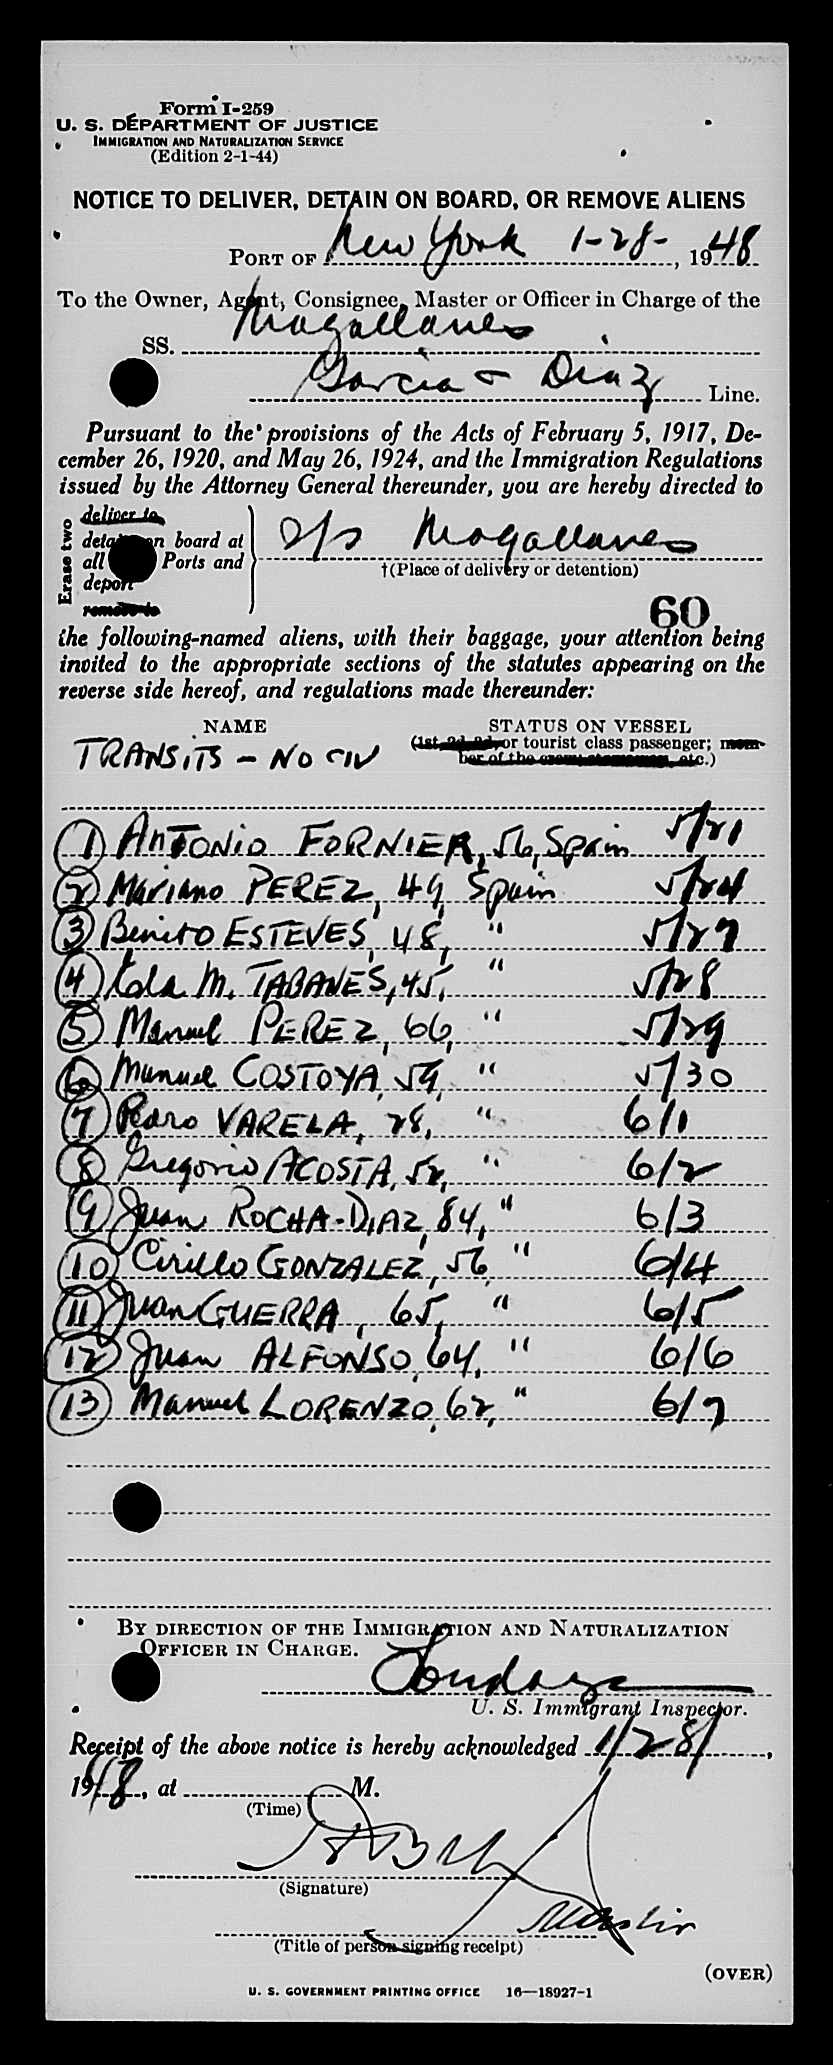 Form I-259
U. S. DEPARTMENT OF JUSTICE
IMMIGRATION AND NATURALIZATION SERVICE
(Edition 2-1-44)
NOTICE TO DELIVER, DETAIN ON BOARD, OR REMOVE ALIENS
PORT OF New York 1-28-, 1948
To the Owner, Agent, Consignee, Master or Officer in Charge of the
SS. Magallanes
Garcia & Diaz Line.
Pursuant to the provisions of the Acts of February 5, 1917, De-
cember 26, 1920, and May 26, 1924, and the Immigration Regulations
issued by the Attorney General thereunder, you are hereby directed to
Erase two
deliver to
detain on board at
all Ports and
deport
remove to
s/s Magallanes
†(Place of delivery or detention)
60
the following-named aliens, with their baggage, your attention being
invited to the appropriate sections of the statutes appearing on the
reverse side hereof, and regulations made thereunder:
NAME STATUS ON VESSEL
(1st, 2d, 3d, or tourist class passenger; mem-
ber of the crew, stowaway, etc.)
TRANSITS - NO CIV
1 Antonio FORNIER, 56, Spain 5/21
2 Mariano PEREZ, 49, Spain 5/24
3 Benito ESTEVES, 48, " 5/27
4 M. TABANES, 45, " 5/28
5 Manuel PEREZ, 66, " 5/29
6 Manuel COSTOYA, 59, " 5/30
7 Pedro VARELA, 28, " 6/1
8 Gregorio ACOSTA, 52, " 6/2
9 Juan ROCHA-DIAZ, 84, " 6/3
10 Cirillo GONZALEZ, 56, " 6/4
11 Juan GUERRA, 65, " 6/5
12 Juan ALFONSO, 64, " 6/6
13 Manuel LORENZO, 62, " 6/7
BY DIRECTION OF THE IMMIGRATION AND NATURALIZATION
OFFICER IN CHARGE.
U. S. Immigrant Inspector.
Receipt of the above notice is hereby acknowledged 1/28/,
1948, at M.
(Time)
(Signature)
(Title of person signing receipt)
(OVER)
U. S. GOVERNMENT PRINTING OFFICE 16—18927-1